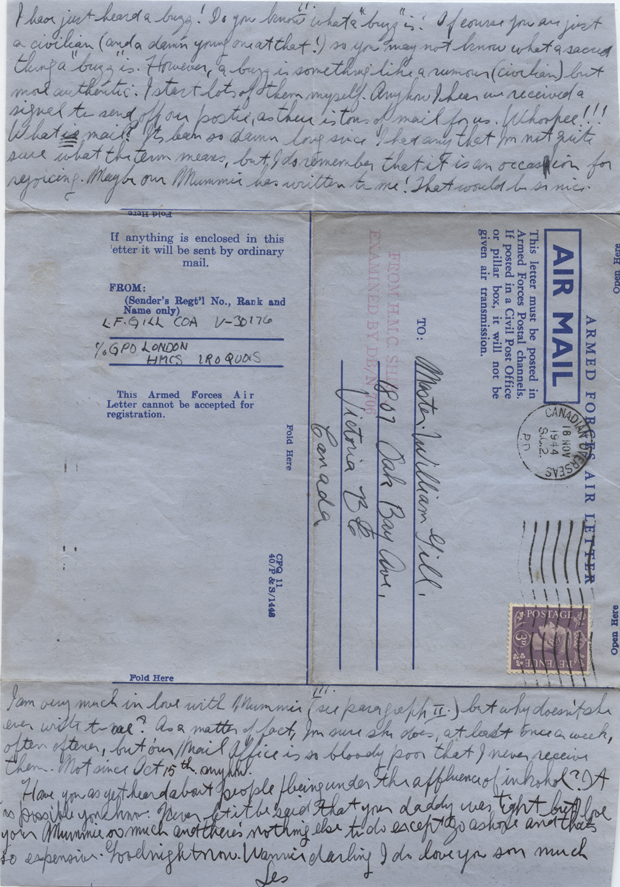 I have just heard a buzz! Do you know what a "buzz" is? Of course you are just
a civilian (and a damn young one at that!) so you may not know what a sacred
thing a "buzz" is. However, a buzz is something like a rumour (civilian) but
more authentic. I start lots of them myself. Anyhow I hear we received a
signal to send off our postie as there is tons of mail for us. Whoopee!!!
What is mail? It's been so damn long since I had any that I'm not quite
sure what the term means, but I do remember that it is an occasion for
rejoicing. Maybe our Mummie has written to me! That would be so nice.
Fold Here
If anything is enclosed in this
letter it will be sent by ordinary
mail.
FROM:
(Sender's Regt'l No., Rank and
Name only)
L.F. GILL COA V-30176
c/o GPO LONDON
HMCS IROQUOIS
This Armed Forces Air
Letter cannot be accepted for
registration.
Fold Here
CFQ 11
40/P & S/1448
Open Here
ARMED FORCES AIR LETTER
AIR MAIL
This letter must be posted in
Armed Forces Postal channels.
If posted in a Civil Post Office
or pillar box, it will not be
given air transmission.
CANADIAN OVERSEAS
18 NOV
1944
S.C.2.
P.D.
POSTAGE
3D
FROM H.M.C. SHIP
EXAMINED BY DB/N
TO:
Master William Gill.
1807 Oak Bay Ave,
Victoria BC
Canada
Open Here
Fold Here
III
I am very much in love with Mummie (see paragraph II.) but why doesn't she
ever write to me? As a matter of fact, I'm sure she does, at least once a week,
often oftener, but our Mail Office is so bloody poor that I never receive
them. Not since Oct 15th anyhow.
Have you as yet heard about people being under the affluence of inkohol?) A
is possible you know. Never let it be said that your daddy was tight but I love
your Mummie so much and there's nothing else to do except go ashore and that's
so expensive. Goodnight now. Wannie darling I do love you son much
Les